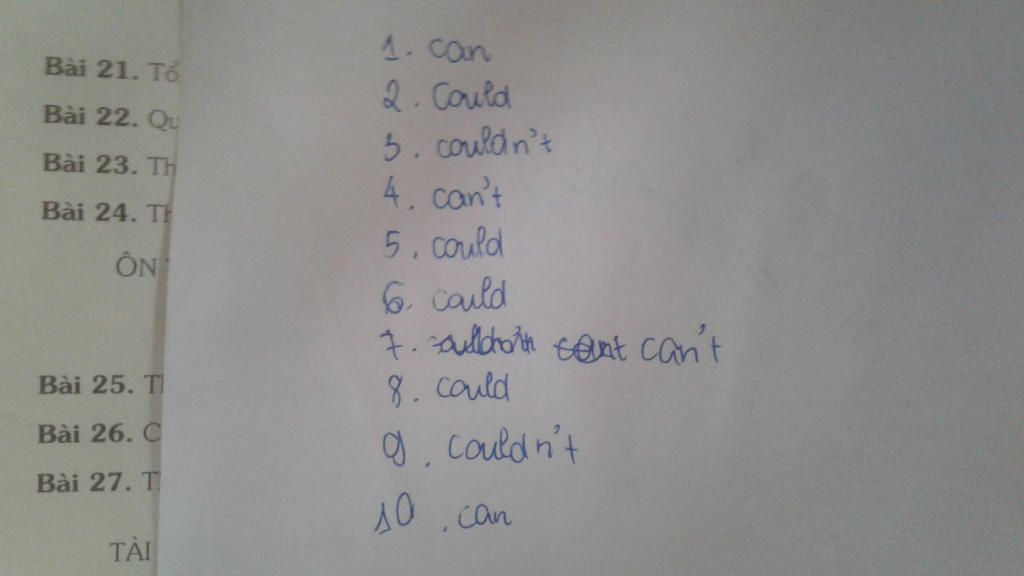 Bài 21. Tổ
Bài 22. Qu
Bài 23. Th
Bài 24. Th
ÔN
Bài 25. T
Bài 26. C
Bài 27. T
TÀI
1. can
2. Could
3. couldn't
4. can't
5. could
6. could
7. can't
8. could
9. couldn't
10. can